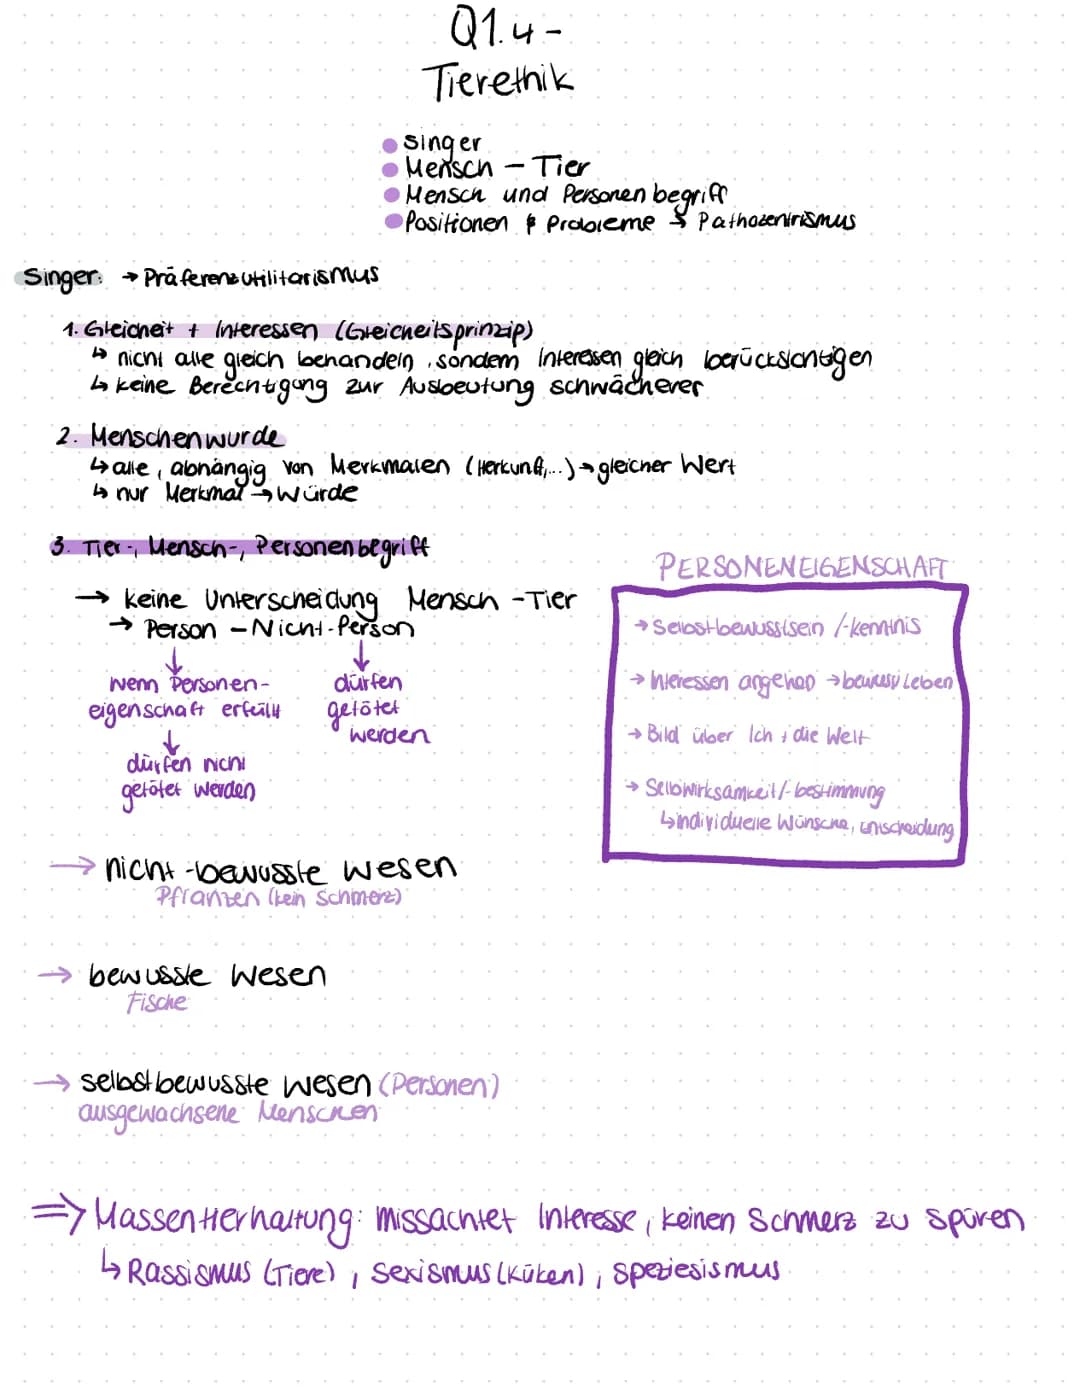 Q1.4 -
Tierethik
Singer
Mensch - Tier
Mensch und Personenbegriff
Positionen & Probleme & Pathozentrismus
Singer: → Präferenzutilitarismus
1. Gleicheit + Interessen (Gleicheitsprinzip)
↳ nicht alle gleich behandeln, sondern Interessen gleich berücksichtigen
↳ keine Berechtigung zur Ausbeutung schwächerer
2. Menschenwurde
↳ alle, abhängig von Merkmalen (Herkunft,...) → gleicher Wert
↳ nur Merkmal → Würde
3. Tier-, Mensch-, Personenbegriff
→ keine Unterscheidung Mensch - Tier
→ Person - Nicht-Person
wenn Personen-
eigenschaft erfüllt
↓
dürfen nicht
getötet werden
dürfen
getötet
werden
PERSONENEIGENSCHAFT
→ Selbstbewusstsein /-kenntnis
→ Interessen angehen → bewusst Leben
→ Bild über Ich + die Welt
→ Selbwirksamkeit/-bestimmung
↳ individuelle Wünsche, Entscheidung
→ nicht-bewusste Wesen
Pflanzen (kein Schmerz)
→ bewusste Wesen
Fische
→ selbstbewusste Wesen (Personen)
ausgewachsene Menschen
⇒ Massentierhaltung: missachtet Interesse, keinen Schmerz zu spüren
↳ Rassismus (Tiere), Sexismus (Küken), Speziesismus